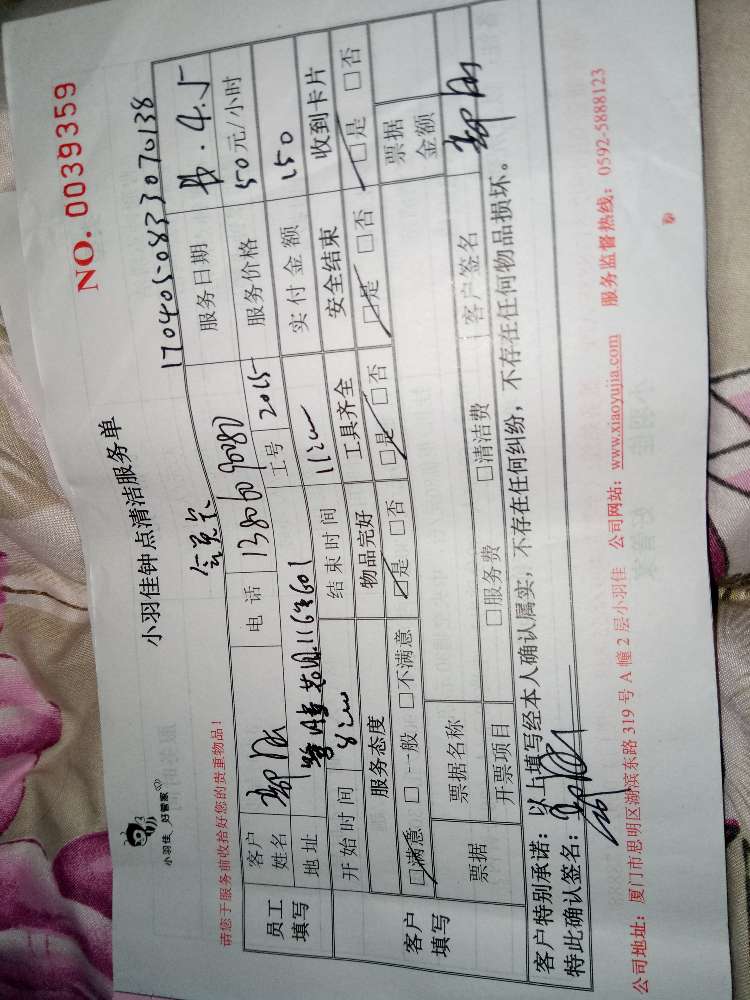 小羽佳 好管家
小羽佳钟点清洁服务单
NO. 0039359
请您于服务前收拾好您的贵重物品!
会员卡 1704050833070138
员工填写 客户姓名 电话 13806090080 服务日期 4.5
地址 116号601 工号 2015 服务价格 50元/小时
开始时间 结束时间 实付金额 150
客户填写 服务态度 物品完好 工具齐全 安全结束 收到卡片
☑满意 □一般 □不满意 ☑是 □否 ☑是 □否 ☑是 □否 ☑是 □否
票据 票据名称 票据金额
开票项目 □服务费 □清洁费 客户签名
客户特别承诺:以上填写经本人确认属实,不存在任何纠纷,不存在任何物品损坏。
特此确认签名:
公司地址:厦门市思明区湖滨东路 319 号 A 幢 2 层小羽佳 公司网站:www.xiaoyujia.com 服务监督热线:0592-5888123